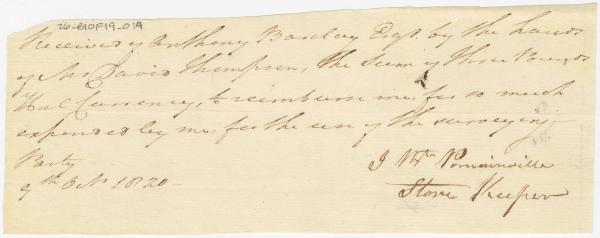 26-B10F19-014
Received of Anthony Barclay Esqr. by the hands
of Mr David Thompson, the Sum of three Pounds
Hal Currency, to reimburse me for so much
expended by me for the use of the surveying
Party
9th Oct 1820-
J Bte
Store Keeper